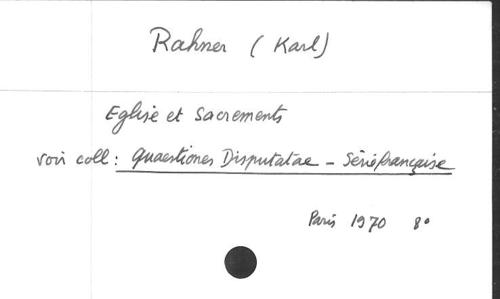 Rahner (Karl)
Eglise et Sacrements
voir coll: Quaestiones Disputatae - Série française
Paris 1970 8°